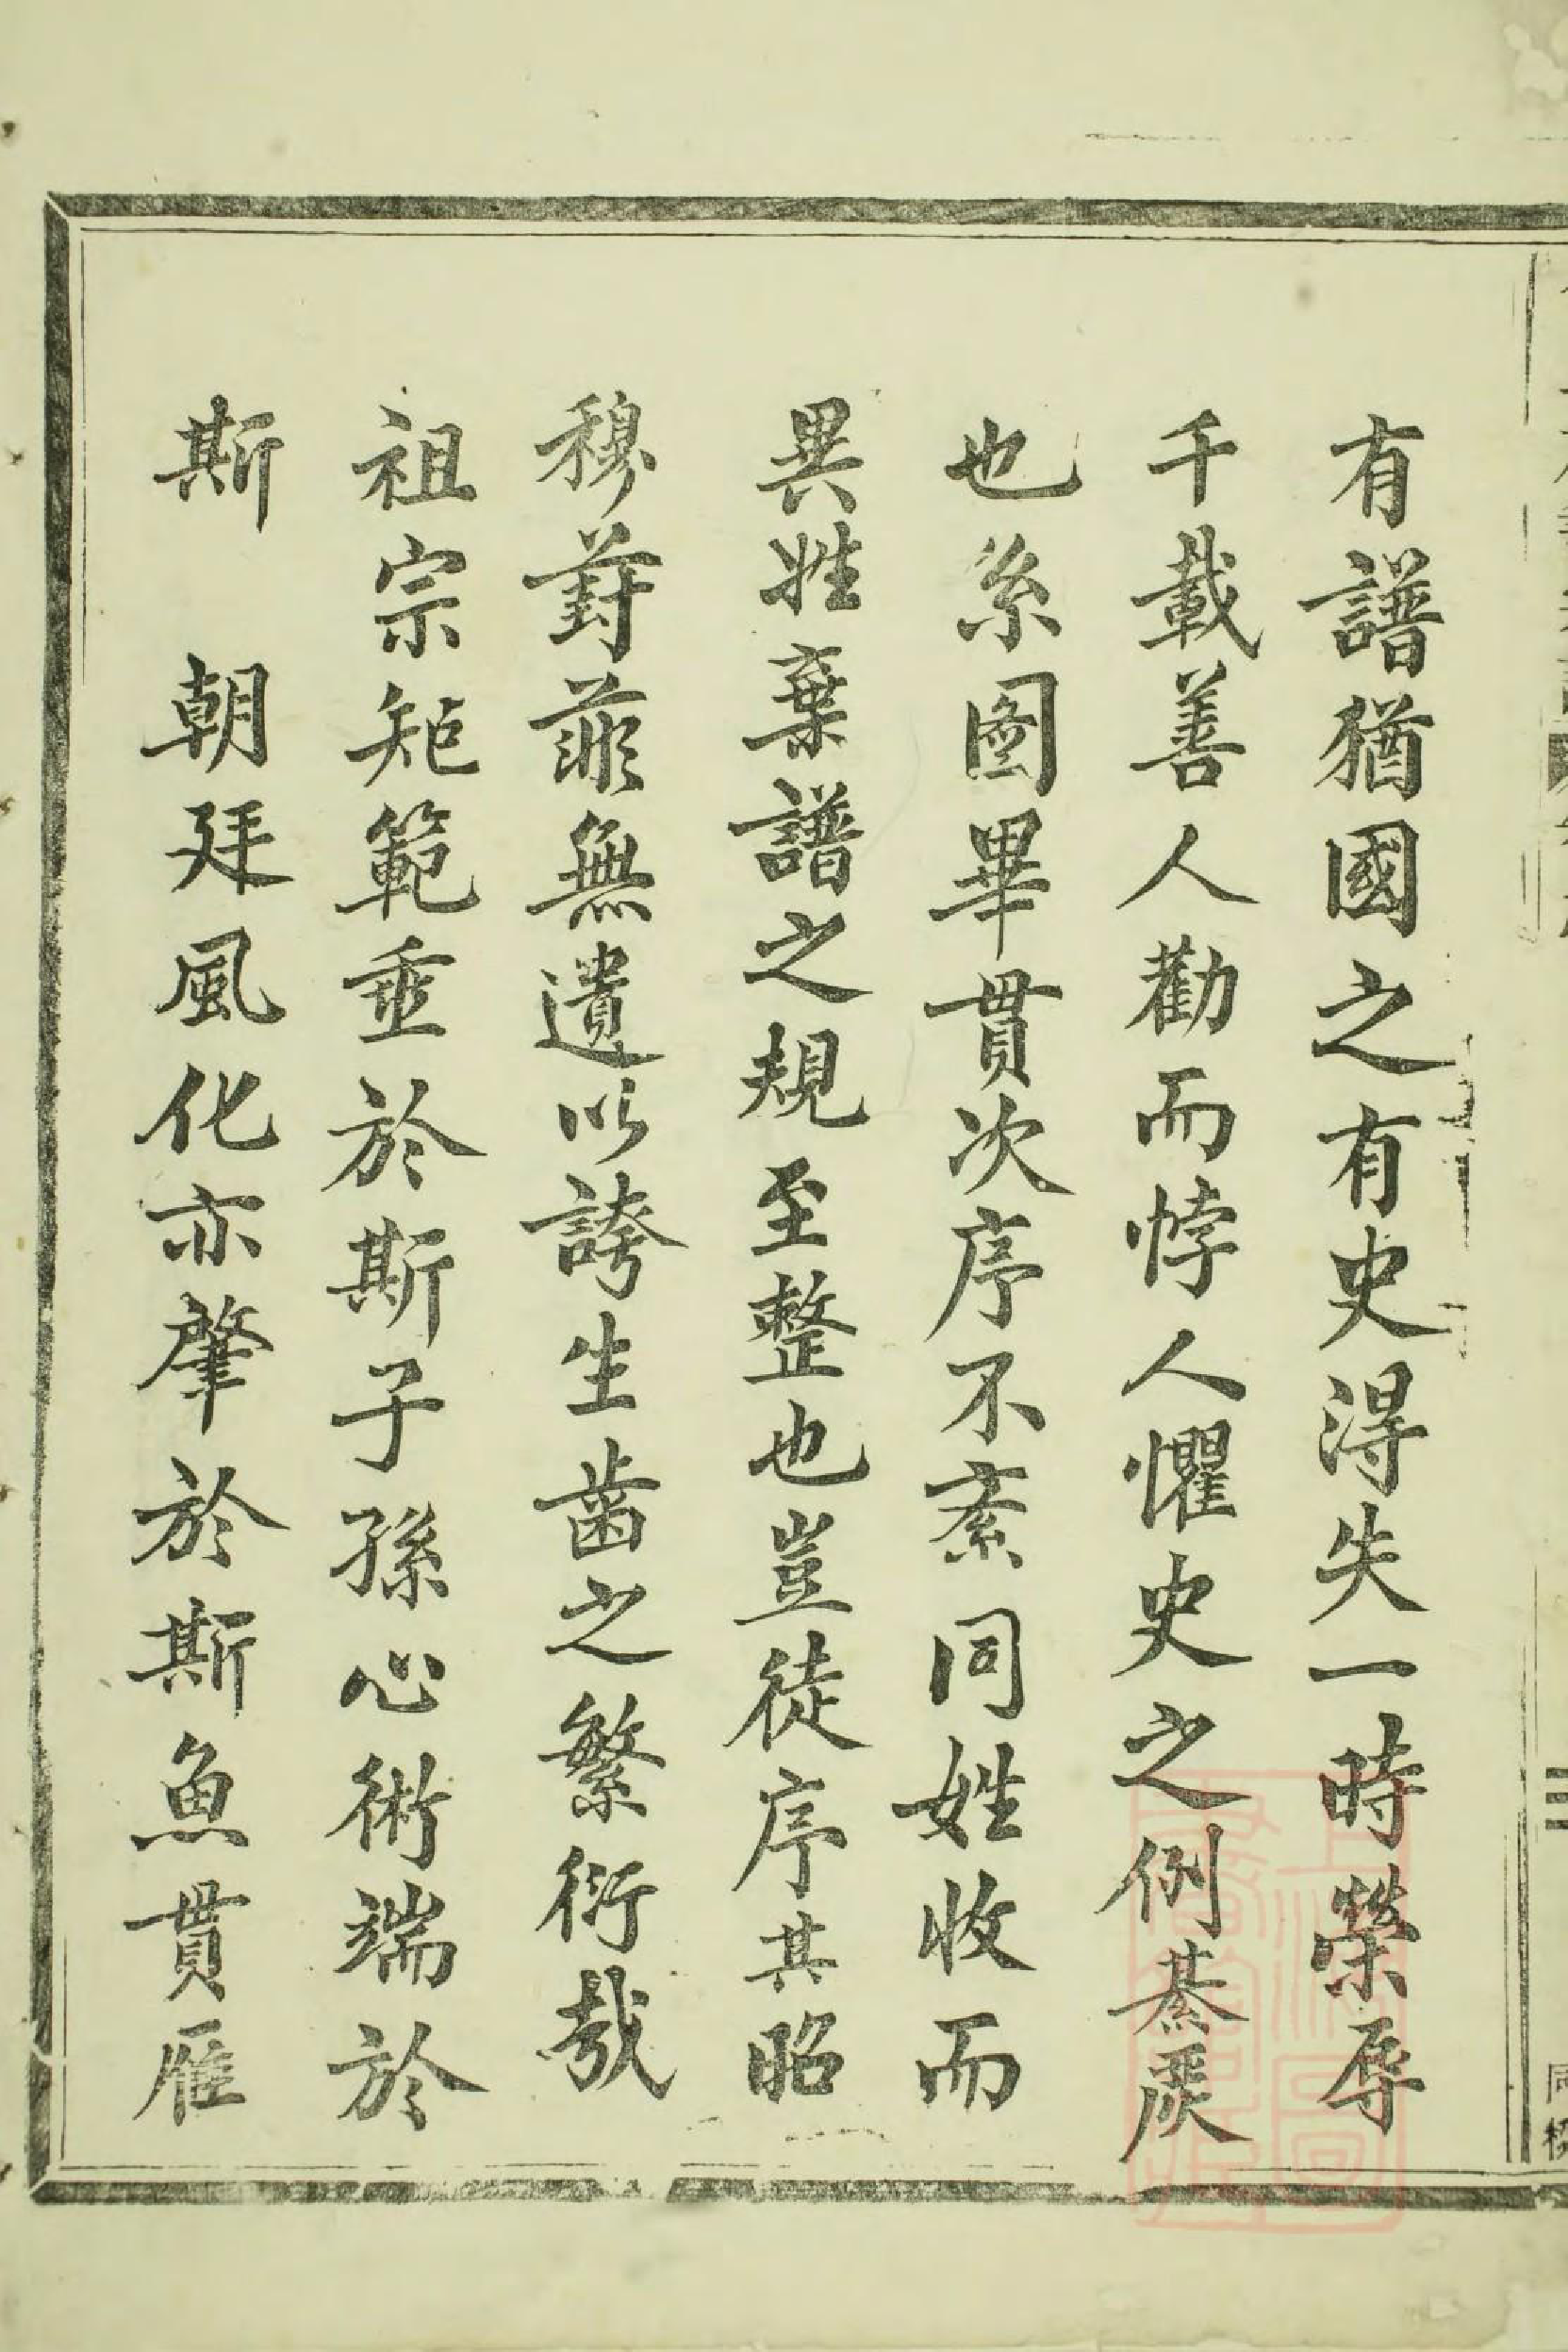 有譜猶國之有史得失一時榮辱
千載善人勸而悖人懼史之例綦嚴
也系圖畢貫次序不紊同姓收而
異姓棄譜之規至整也豈徒序其昭
穆葑菲無遺以誇生齒之繁衍哉
祖宗矩範垂於斯子孫心術端於
斯　朝廷風化亦肇於斯魚貫雁